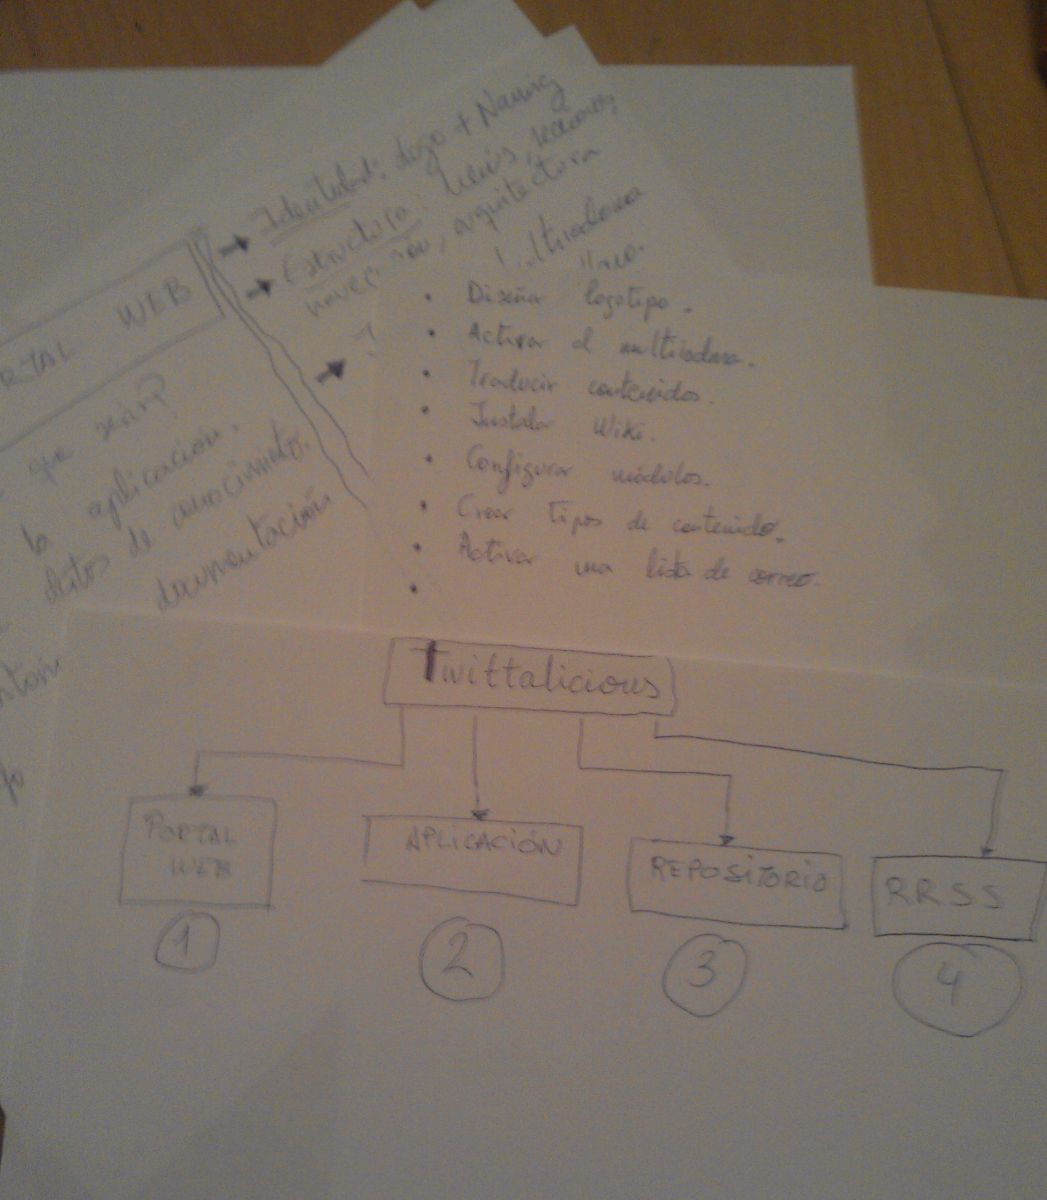 → Identidad: Logo + Naming
→ Estructura: menús, secciones,
navegación, arquitectura
→ ?
WEB
que serán?
la aplicación.
de conocimiento.
documentación
Multiidioma
• Diseñar logotipo.
• Activar el multiidioma.
• Traducir contenidos.
• Instalar Wiki.
• Configurar módulos.
• Crear tipos de contenido.
• Activar una lista de correo.
•
Twittalicious
PORTAL
WEB
APLICACIÓN
REPOSITORIO
RRSS
1
2
3
4